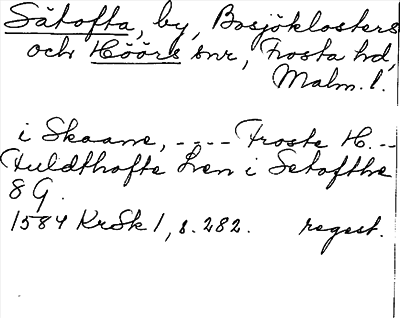 Sätofta, by, Bosjöklosters
och Höörs snr, Frosta hd,
Malm. l.
i Skaane, ---- Froste H. --
Fuldthofte Len i Setofthe
8 G.
1584 KrSk 1, s. 282. regest.